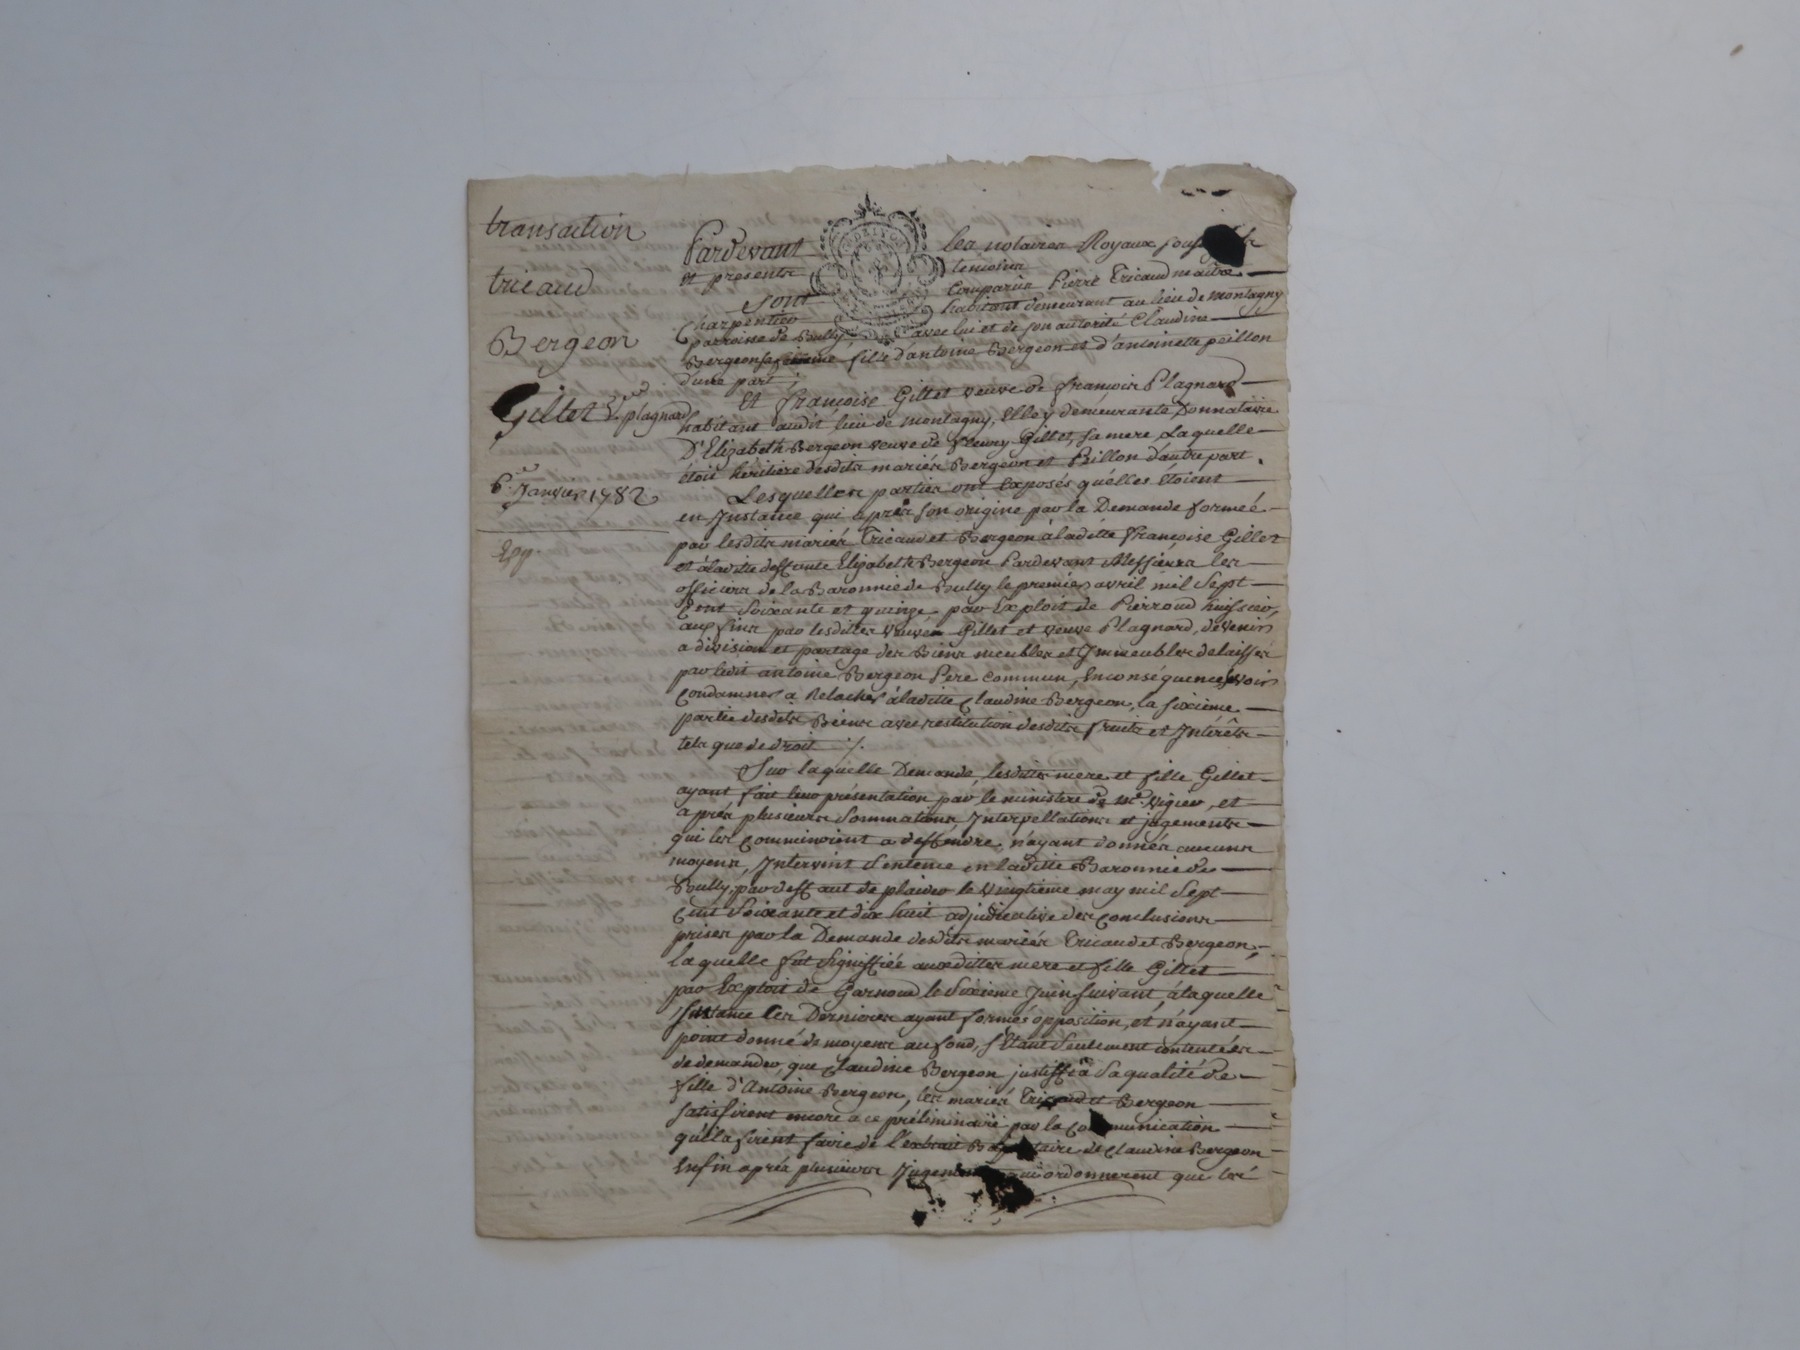 transaction
tricaud
Bergeon
Gillet Ve plagnard
6e Janvier 1782
Exp.
Pardevant les notaires Royaux
et presents temoins
sont comparus Pierre Tricaud maitre
Charpentier habitant demeurant au lieu de montagny
parroisse de Bully avec lui et de son autorité Claudine
Bergeon sa femme fille d'antoine Bergeon et d'antoinette peillon
d'une part;
Et françoise Gillet veuve de françois Plagnard
habitant audit lieu de montagny, Elle y demeurante Donnataire
D'Elizabeth Bergeon veuve de fleury Gillet, sa mere, Laquelle
étoit heritière desdits mariés Bergeon et Peillon d'autre part.
Lesquelles parties ont Exposés qu'elles étoient
en Instance qui a pris son origine par la Demande formeé
par lesdits mariés Tricaud et Bergeon à ladite françoise Gillet
et à ladite deffunte Elizabeth Bergeon Pardevant Messieurs les
officiers de la Baronnie de Bully le premier avril mil Sept
Cent Soixante et quinze par Exploit de Pierroud huissier,
aux fins par lesdittes veuves Gillet et veuve Plagnard, de venir
a division et partage des Biens meubles et Immeubles delaissés
par ledit antoine Bergeon Pere Commun, En conséquence se voir
Condamner a Relacher à ladite Claudine Bergeon, la sixième
partie desdits Biens avec restitution desdits fruits et Intérêts
tels que de droit ./.
Sur laquelle Demande, lesdittes mere et fille Gillet
ayant fait leur présentation par le ministere de Me. Vigier, et
après plusieurs Sommations Interpellations et jugements
qui les Comminoient a deffendre, n'ayant donnés aucuns
moyens, Intervint Sentence en laditte Baronnie de
Bully, par deffaut de plaider le Vingtieme may mil Sept
Cent Soixante et dix huit adjudicative des Conclusions
prises par la Demande desdits mariés Tricaud et Bergeon,
laquelle fut signiffiée auxdittes mere et fille Gillet
par Exploit de Garnoud le Sixieme Juin suivant, à laquelle
Les Dernieres ayant formés opposition, et n'ayant
point donné de moyens au fond, s'Etant Seulement contentées
de demander, que Claudine Bergeon justiffia Sa qualité de
fille d'Antoine Bergeon, les mariés Tricaud et Bergeon
satisfirent encore a ce préliminaire par la Communication
qu'ils firent faire de l'extrait Baptistaire de Claudine Bergeon
Enfin après plusieurs Jugements qui ordonnerent que les